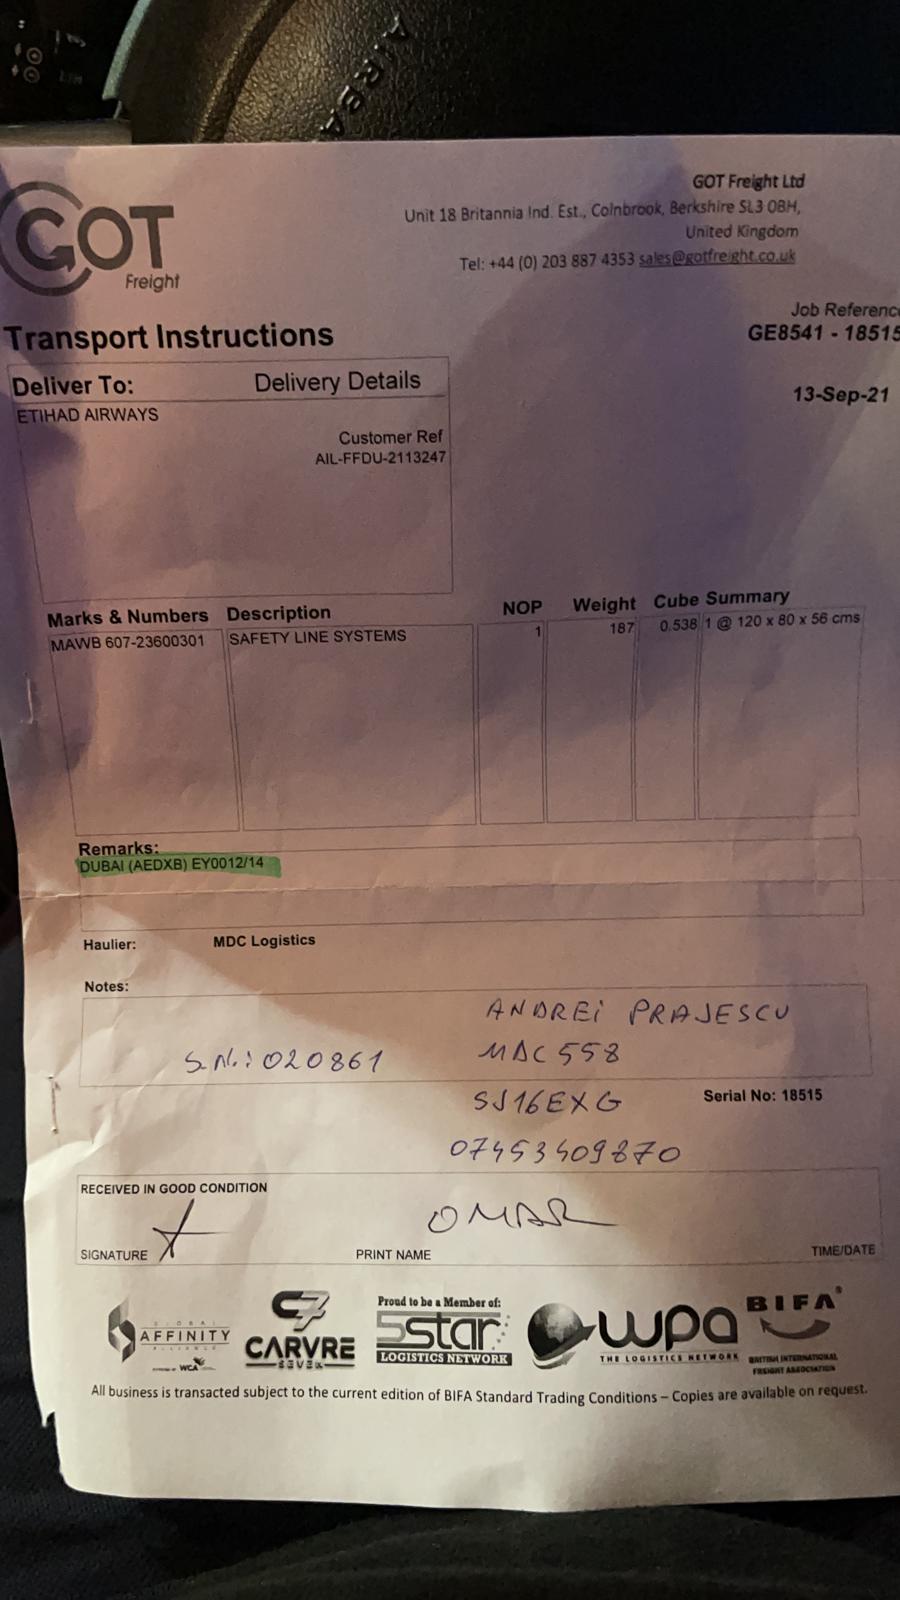 AIRBA
GOT
Freight
GOT Freight Ltd
Unit 18 Britannia Ind. Est., Colnbrook, Berkshire SL3 0BH,
United Kingdom
Tel: +44 (0) 203 887 4353 sales@gotfreight.co.uk
Transport Instructions
Job Referenc
GE8541 - 18515
13-Sep-21
Deliver To: Delivery Details
ETIHAD AIRWAYS
Customer Ref
AIL-FFDU-2113247
Marks & Numbers Description NOP Weight Cube Summary
MAWB 607-23600301 SAFETY LINE SYSTEMS 1 187 0.538 1 @ 120 x 80 x 56 cms
Remarks:
DUBAI (AEDXB) EY0012/14
Haulier: MDC Logistics
Notes:
ANDREI PRAJESCU
S.N.: 020861 MDC 558
SJ16EXG Serial No: 18515
07453409870
RECEIVED IN GOOD CONDITION
OMAR
SIGNATURE PRINT NAME TIME/DATE
GLOBAL
AFFINITY
ALLIANCE
WCA
C7
CARVRE
SEVEN
Proud to be a Member of:
5star
LOGISTICS NETWORK
wpa
THE LOGISTICS NETWORK
BIFA
BRITISH INTERNATIONAL
FREIGHT ASSOCIATION
All business is transacted subject to the current edition of BIFA Standard Trading Conditions – Copies are available on request.